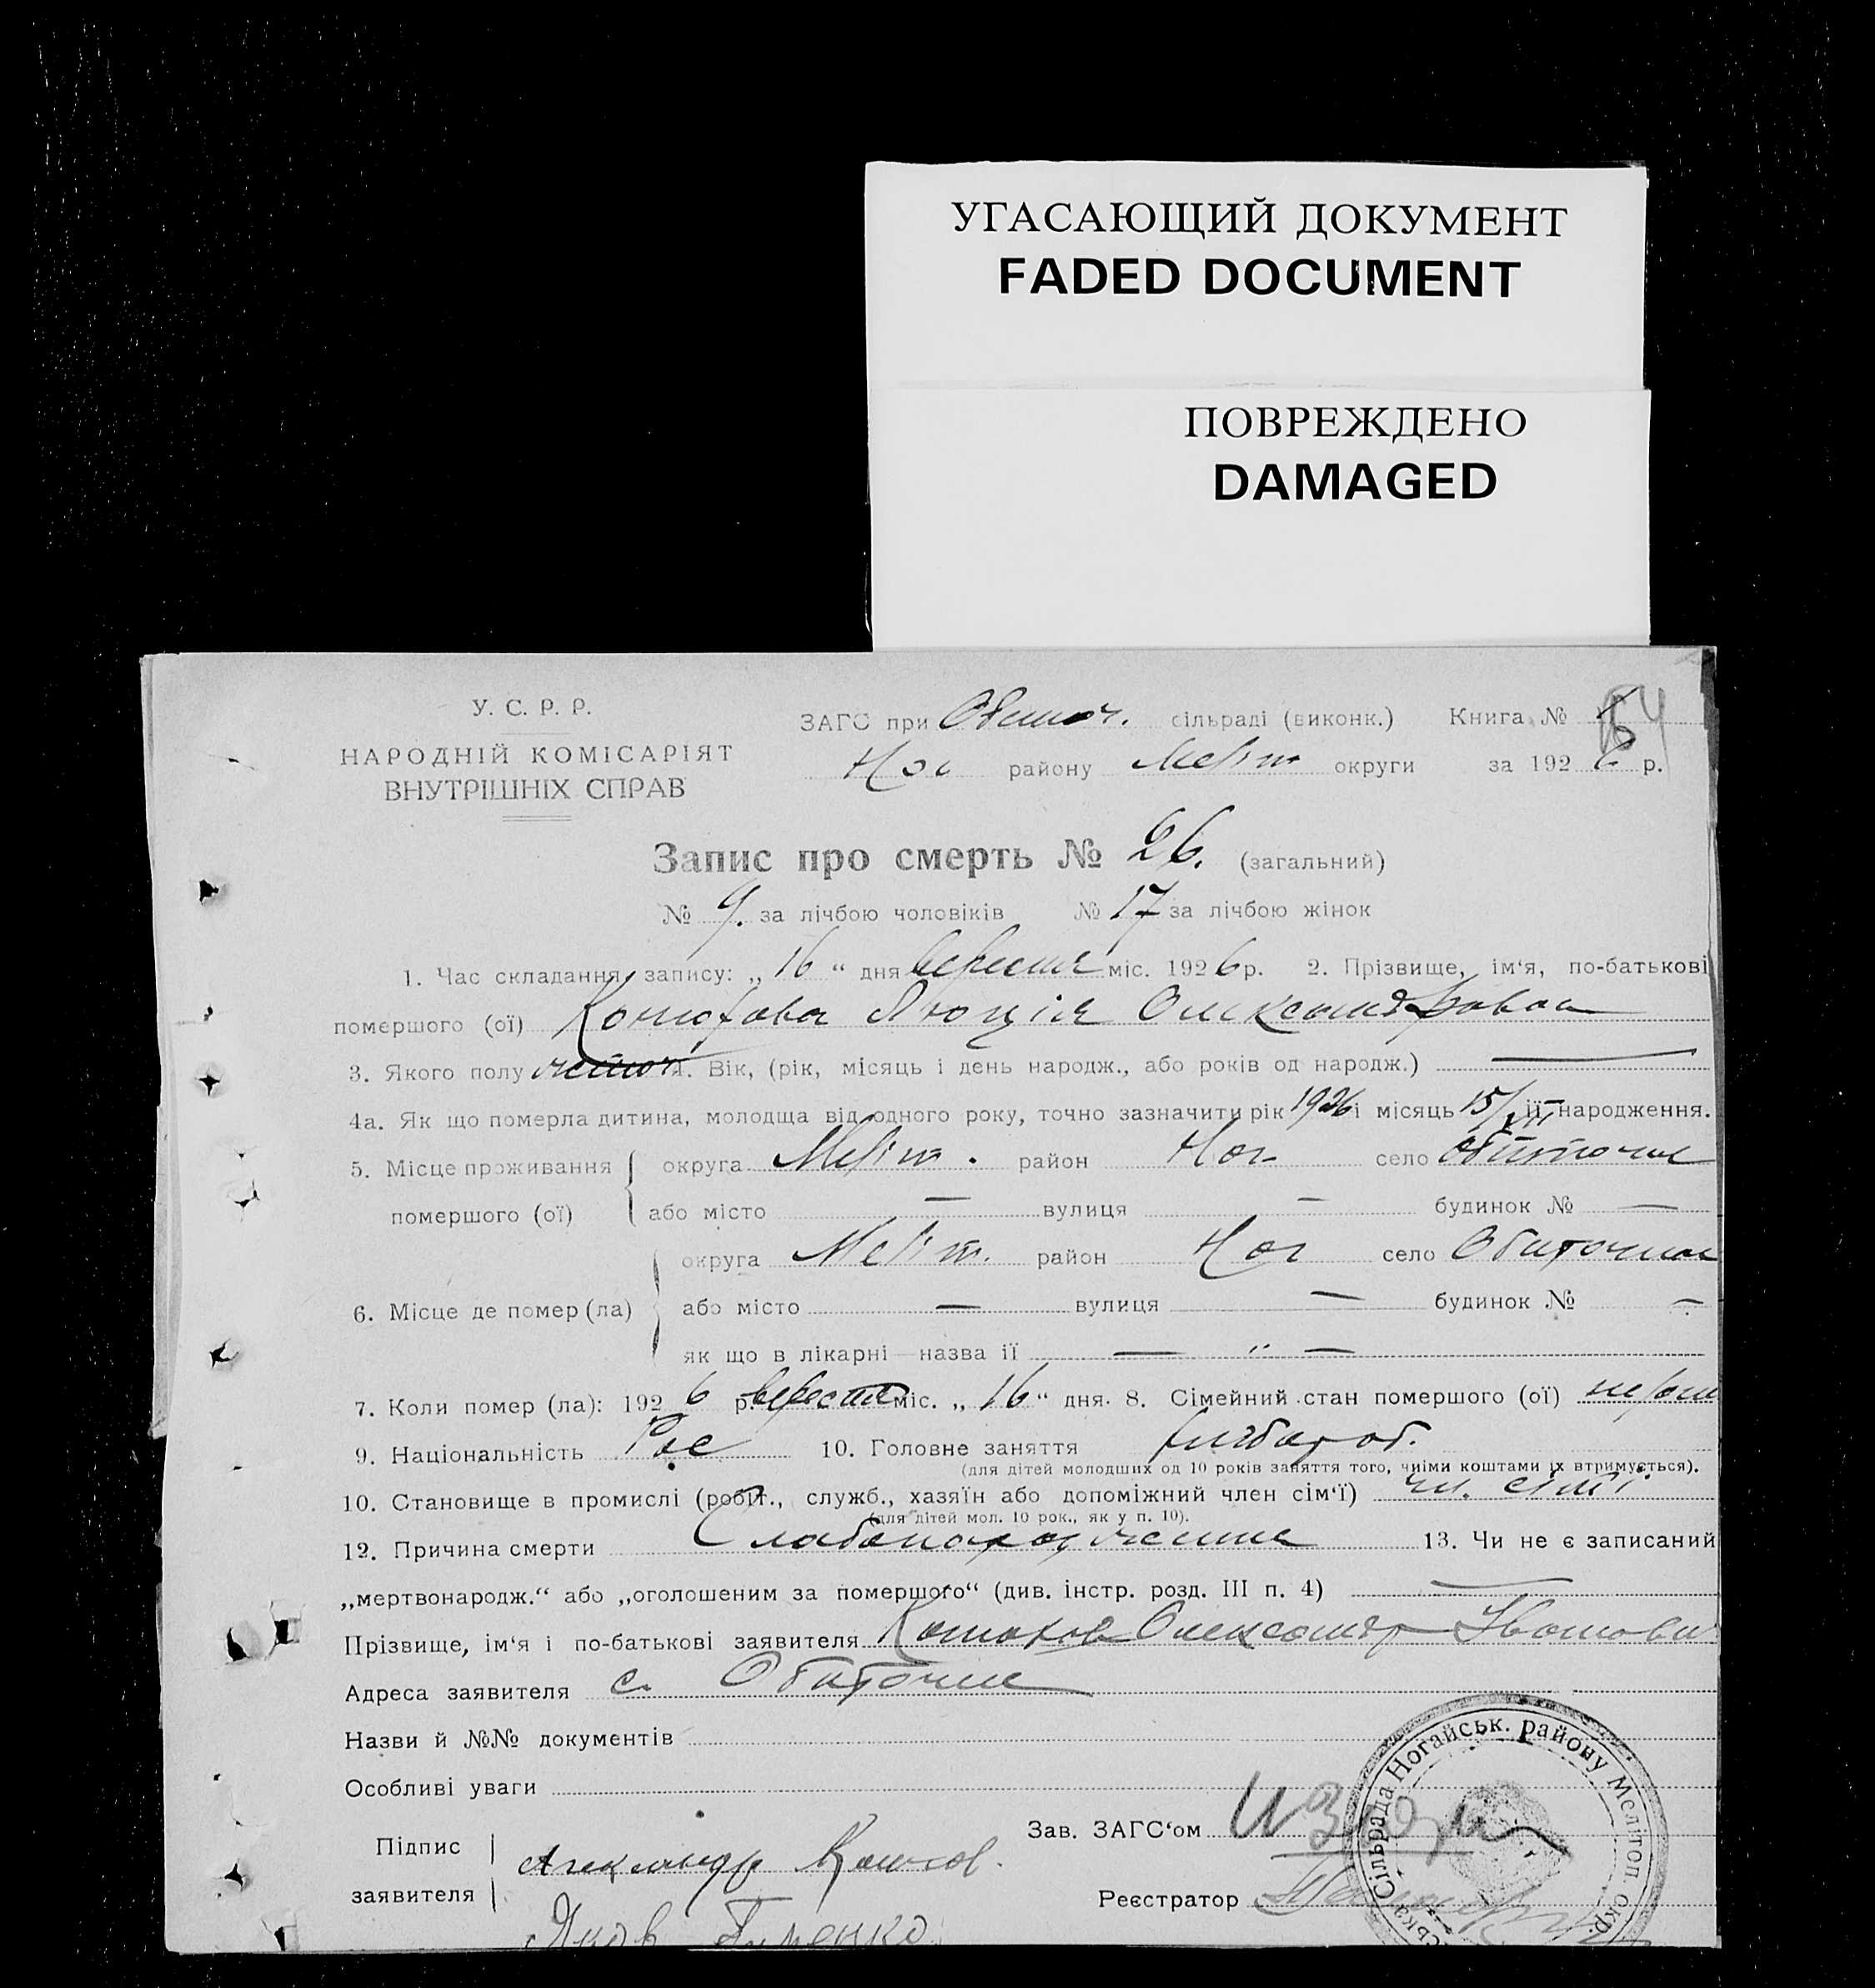 УГАСАЮЩИЙ ДОКУМЕНТ
FADED DOCUMENT
ПОВРЕЖДЕНО
DAMAGED
У. С. Р. Р.
НАРОДНІЙ КОМІСАРІЯТ
ВНУТРІШНІХ СПРАВ
ЗАГС при Обиточ. сільраді (виконк.) Книга №
Ног району Меліт округи за 192 6 р.
Запис про смерть № 26. (загальний)
№ 9. за лічбою чоловіків № 17 за лічбою жінок
1. Час складання запису: „ 16 “ дня вересня міс. 192 6 р. 2. Прізвище, ім‘я, по-батькові
помершого (ої) Конюхова Люція Олександровна
3. Якого полу жіноч. Вік, (рік, місяць і день народж., або років од народж.) —
4а. Як що померла дитина, молодща від одного року, точно зазначити рік 1926 і місяць 15/VII її народження.
5. Місце проживання помершого (ої) округа Меліт. район Ног село Обиточне
або місто — вулиця — будинок № —
6. Місце де помер (ла) округа Меліт. район Ног село Обиточне
або місто — вулиця — будинок № —
як що в лікарні—назва ії — „ —
7. Коли помер (ла): 192 6 р. вересня міс. „ 16 “ дня. 8. Сімейний стан помершого (ої)
9. Національність Рос 10. Головне заняття хлібороб.
(для дітей молодших од 10 років заняття того, чиїми коштами їх втримується).
10. Становище в промислі (робіт., служб., хазяїн або допоміжний член сім‘ї) чл. сімї
(для дітей мол. 10 рок., як у п. 10).
12. Причина смерти 13. Чи не є записаний
„мертвонародж.“ або „оголошеним за помершого“ (див. інстр. розд. III п. 4) —
Прізвище, ім‘я і по-батькові заявителя Конюхов Олександр Иванови
Адреса заявителя с. Обиточне
Назви й №№ документів
Особливі уваги
Підпис заявителя Александр Конюхов.
Яков
Зав. ЗАГС‘ом
Реєстратор
Сільрада Ногайськ. району Мелітоп. окр.